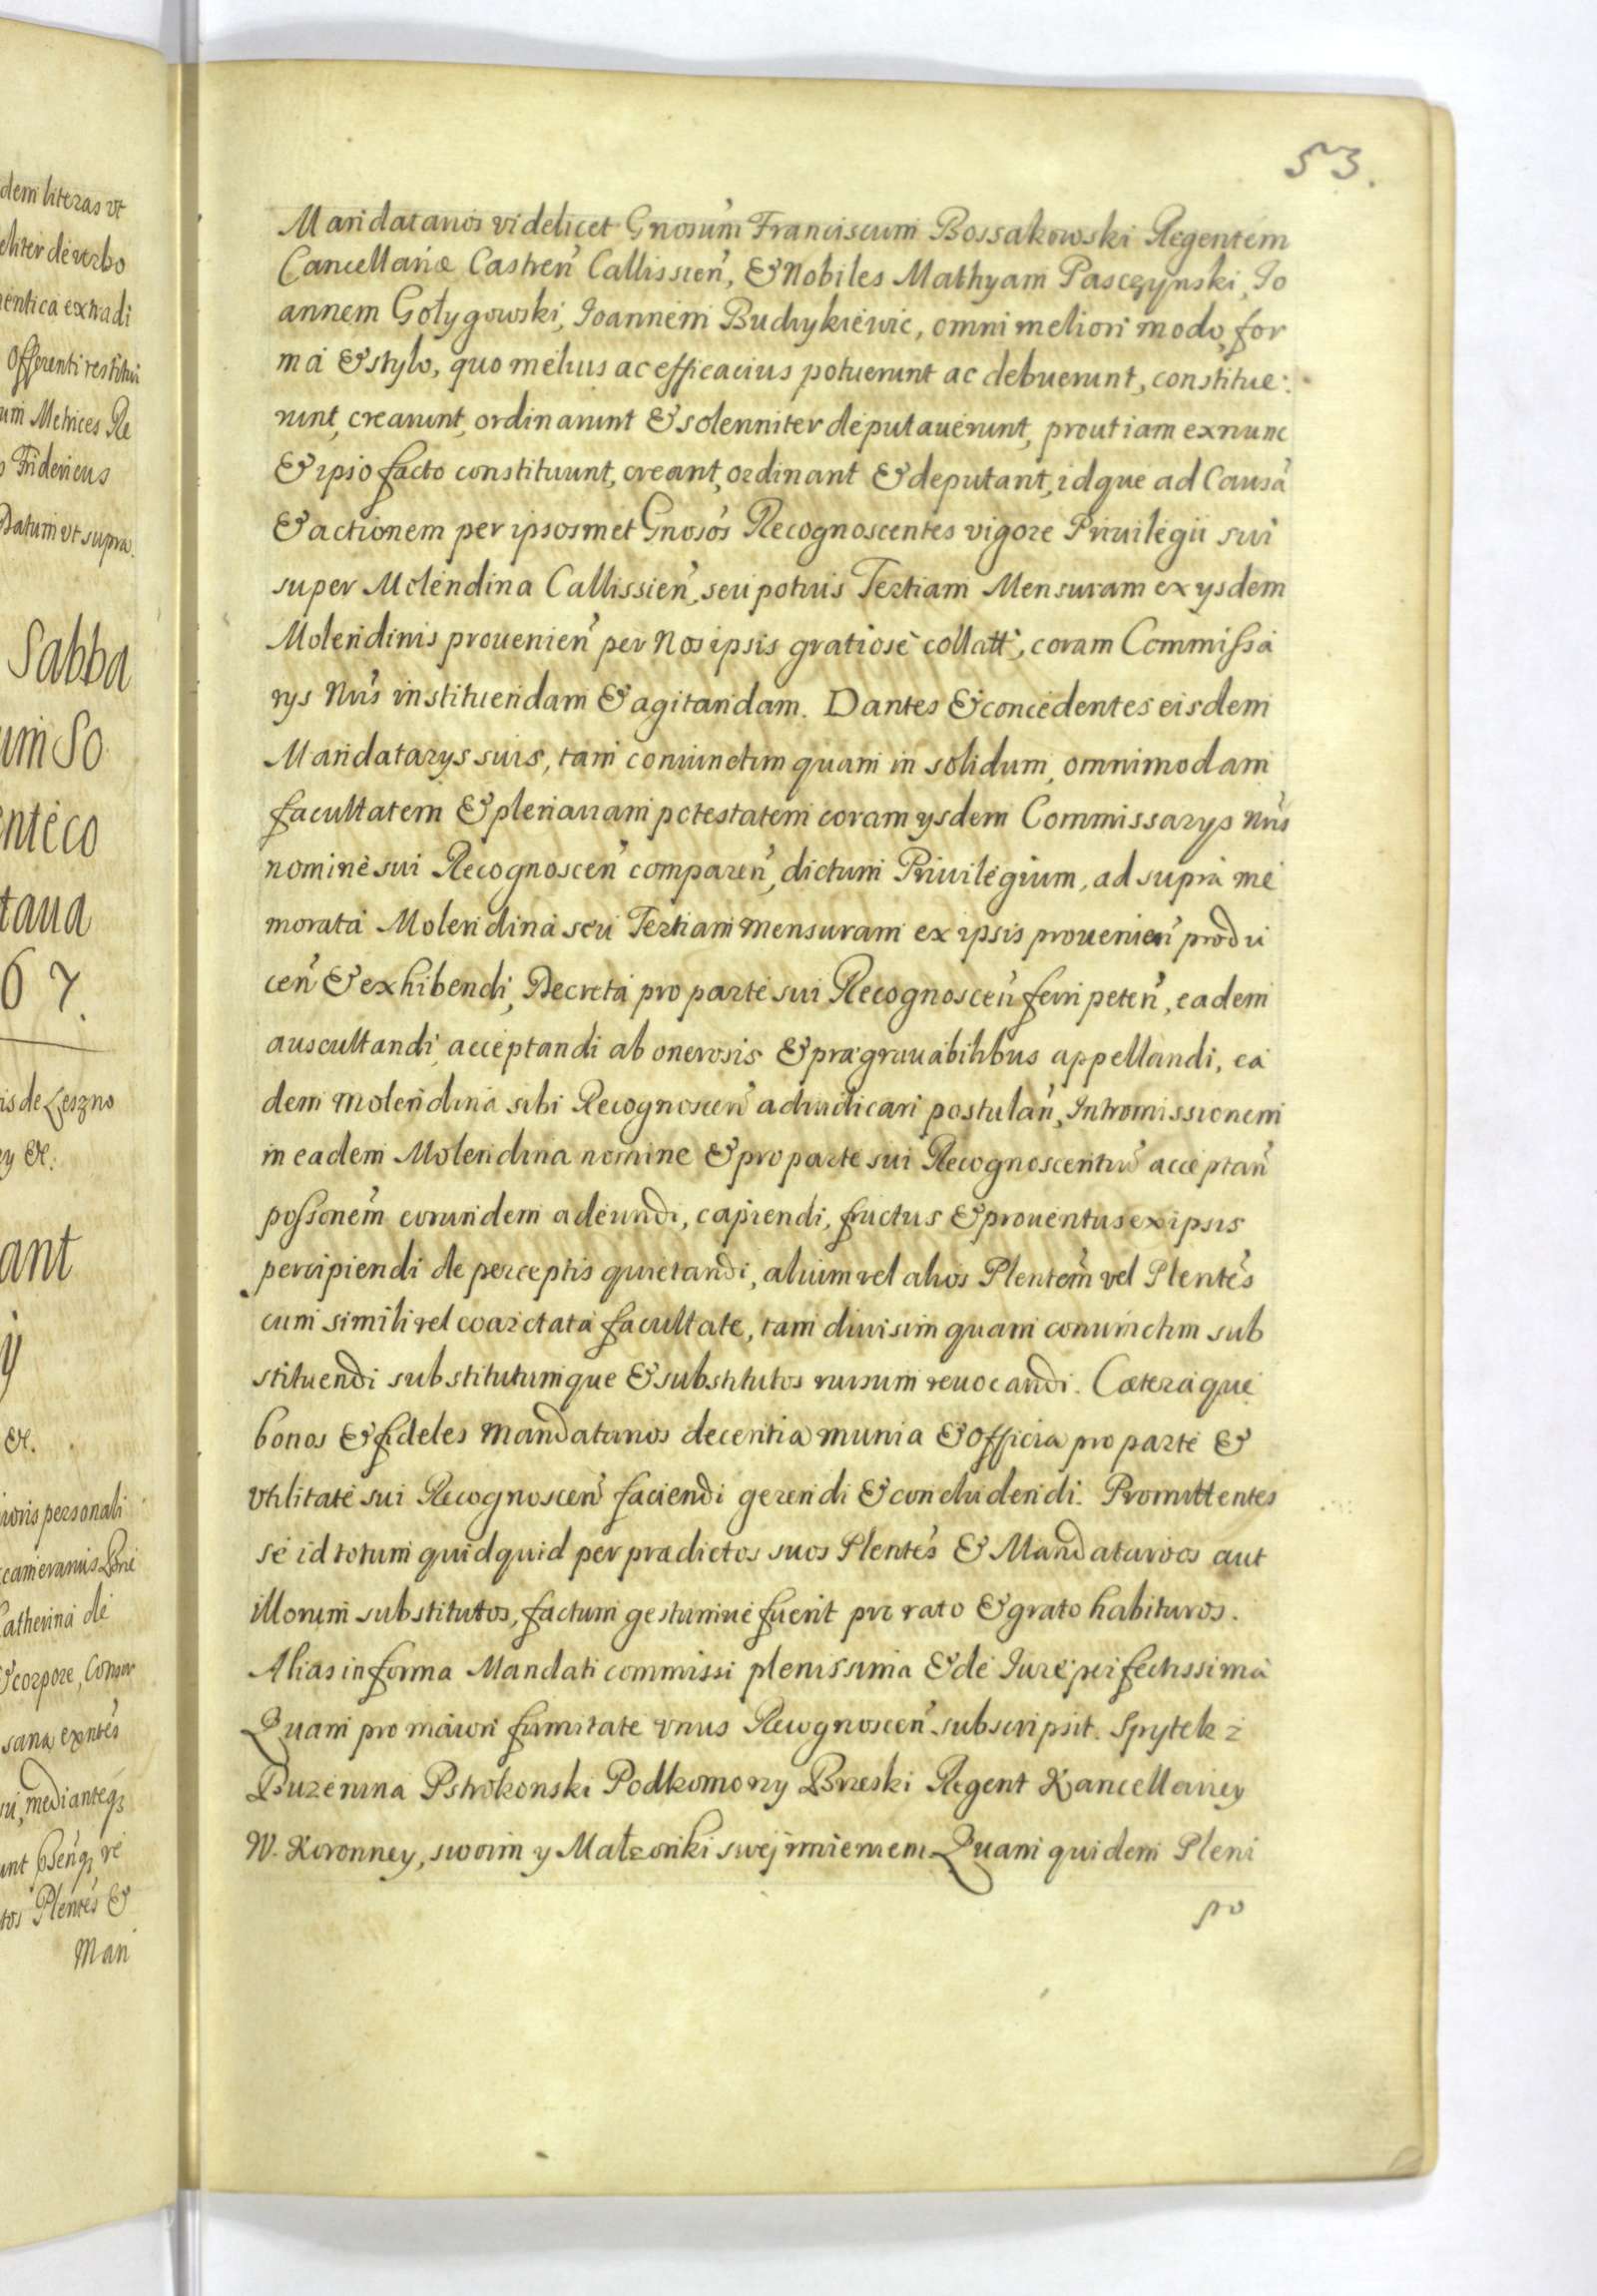 dem literas vt
eliter de verbo
entica extradi
Offerenti restitui
um Metrices Re
Fridericus
Datum vt supra.
Sabba
um So
enteco
taua
67.
is de Leszno
y &c:
ant
y
&c.
ioris personali
cameranus Brne
Catherina de
& corpore, Consor
sana exntes
mediantéq3
unt bseñq3 re
tos Plentes &
Man
53.
Mandatarios videlicet Gnosum̃ Franciscum Bossakowski Regentem
Cancellariæ Castreñ Callissieñ, & Nobiles Mathyam Pasczynski, Io
annem Gołygowski, Ioannem Budrykiewic, omni meliori modo, for
ma & stylo, quo melius ac efficacius potuerunt ac debuerunt, constitue:
runt, crearunt, ordinarunt & solenniter deputauerunt, prout iam exnunc
& ipso facto constituunt, creant, ordinant & deputant, idque ad Causã
& actionem per ipsosmet Gnosos Recognoscentes vigore Priuilegii sui
super Molendina Callissieñ, seu potius Tertiam Mensuram ex ysdem
Molendinis prouenieñ per Nos ipsis gratiosè collatt, coram Commissa
rys Nris̃ instituendam & agitandam. Dantes & concedentes eisdem
Mandatarys suis, tam coniunctim quam in solidum, omnimodam
facultatem & plenariam potestatem coram ysdem Commissarys Nris̃
nomine sui Recognosceñ compareñ, dictum Priuilegium, ad supra me
morata Molendina seu Tertiam mensuram ex ipsis prouenieñ produ
ceñ & exhibendi, Decreta pro parte sui Recognosceñ ferri peteñ, eadem
auscultandi, acceptandi ab onerosis & prægrauabilibus appellandi, ea
dem molendina sibi Recognosceñ adiudicari postulañ, Intromissionem
in eadem Molendina nomine & pro parte sui Recognoscentiũ acceptañ
possionem̃ eorundem adeundi, capiendi, fructus & prouentus ex ipsis
percipiendi de perceptis quietandi, alium vel alios Plentem̃ vel Plentes̃
cum simili vel coarctata facultate, tam diuisim quam coniunctim sub
stituendi substitutumque & substitutos rursum reuocandi. Cæteraque
bonos & fideles mandatarios decentia munia & Officia pro parte &
vtilitate sui Recognosceñ faciendi gerendi & concludendi. Promittentes
se id totum quidquid per prædictos suos Plentes̃ & Mandatarios aut
illorum substitutos, factum gestumue fuerit pro rato & grato habituros.
Alias in forma Mandati commissi plenissima & de Iure perfectissima
Quam pro maiori firmitate vnus Recognosceñ subscripsit. Spytek z
Buzenina Pstrokonski Podkomorzy Brzeski Regent Kancellariey
W. Koronney, swoim y Małzonki swej imieniem Quam quidem Pleni
po